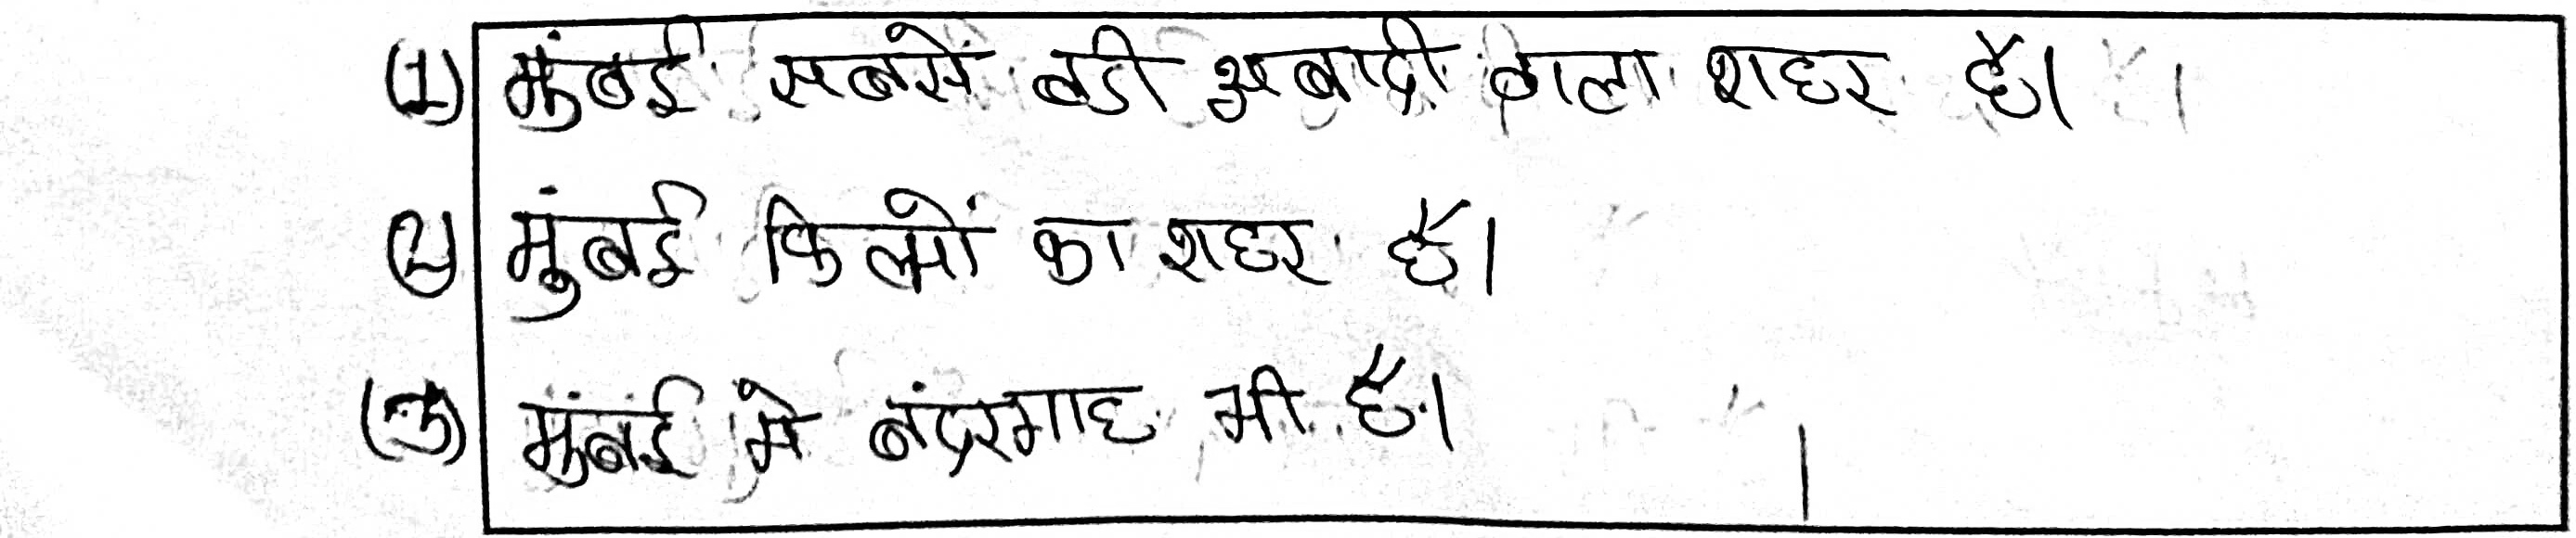 (1) मुंबई सबसें बडी अबादी बाला शहर है।
(2) मुंबई फिल्मों का शहर है।
(3) मुंबई मे बंदरगाह भी है।